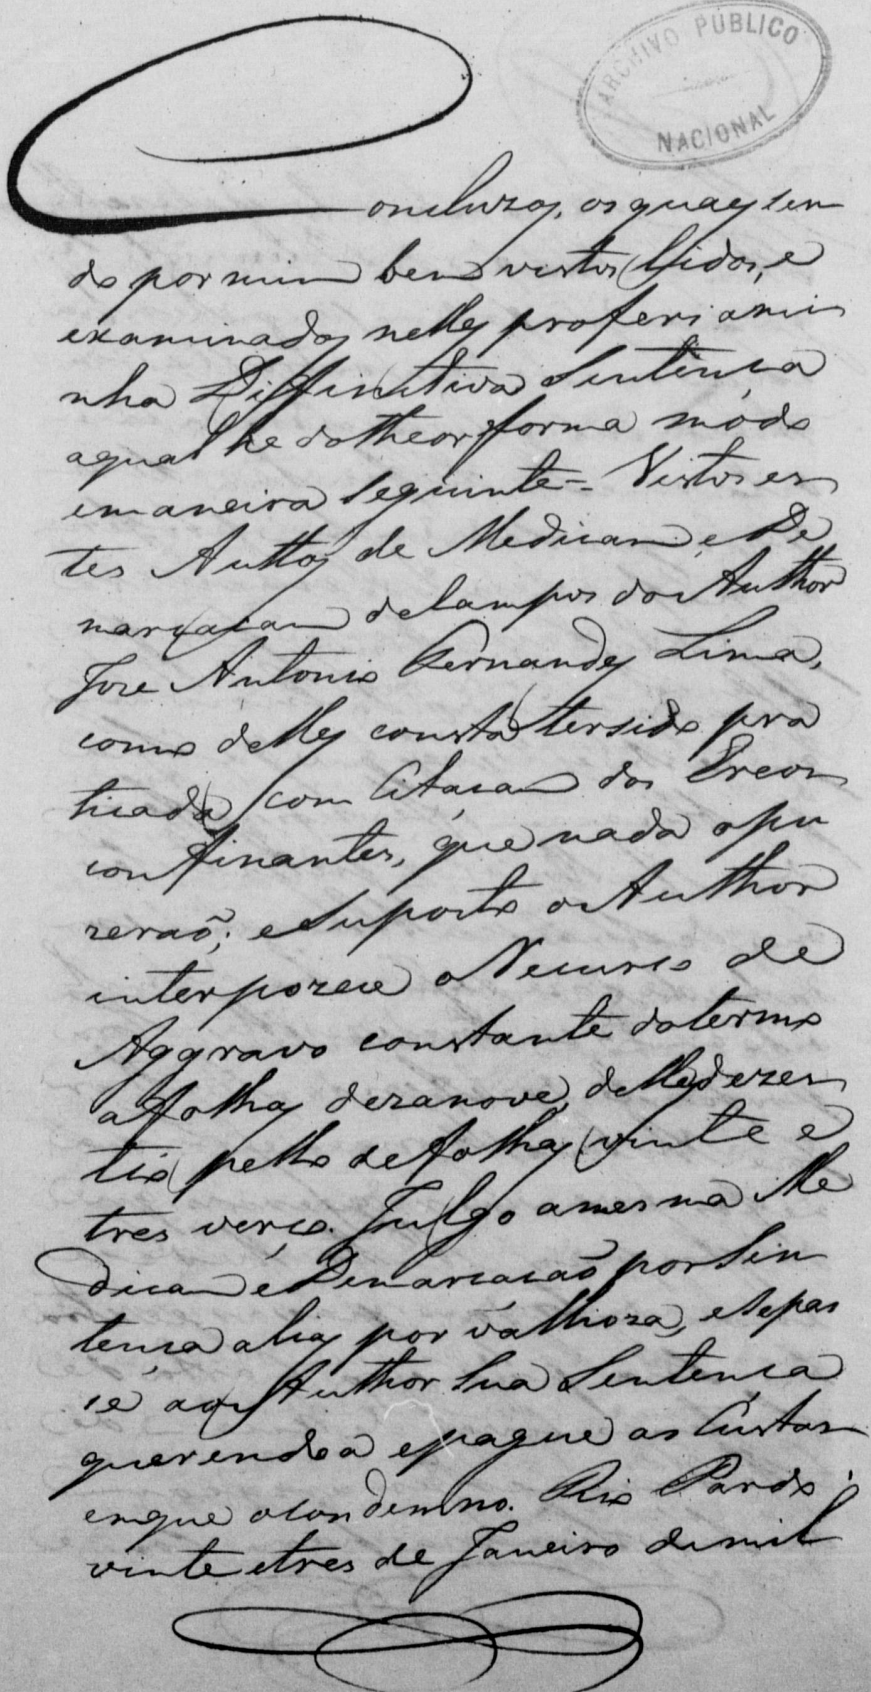 ARCHIVO PUBLICO
NACIONAL
Concluzos, os quaes sen
do por mim bem vistos, lidos, e
examinados nelles proferi a mi
nha Diffinitiva Sentença
a qual he do theor forma módo
e maneira seguinte = Vistos es
tes Auttos de Medicam, e De
marcacam de Campos do Author
Joze Antonio Fernandes Lima,
como delles consta ter sido pra
ticada com Citacam dos Ereos
confinantes, que nada opu
zeraõ; e suposto o Author
interpozece o Recurso de
Aggravo constante do termo
a folhas dezanove, delle dezes
tio pello de folhas vinte e
tres verço. Julgo a mesma Me
dicam e Demarcacaõ por Sen
tença alias por valhioza, e se pas
ce ao Author sua Sentença
querendo a e pague as Custas
em que o condemno. Rio Pardo
vinte e tres de Janeiro de mil